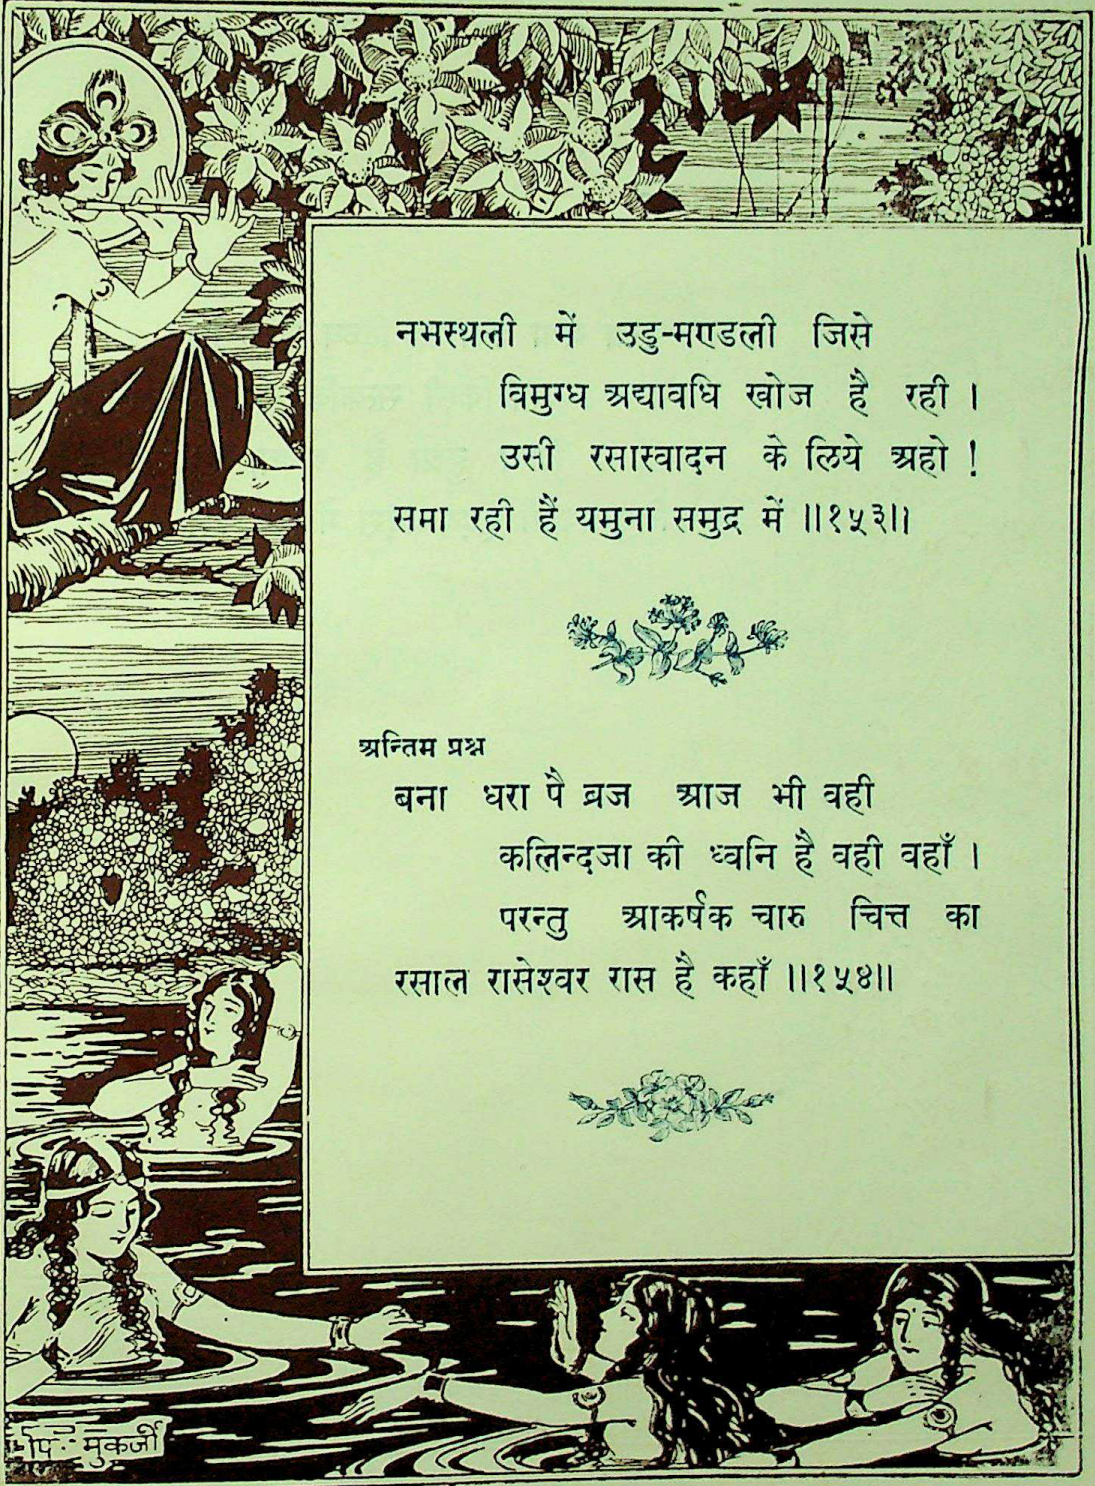 नभस्थली में उडु-मण्डली जिसे
विमुग्ध अद्यावधि खोज है रही ।
उसी रसास्वादन के लिये अहो !
समा रही हैं यमुना समुद्र में ॥१५३॥
अन्तिम प्रश्न
बना धरा पै ब्रज आज भी वही
कलिन्दजा की ध्वनि है वही वहाँ ।
परन्तु आकर्षक चारु चित्त का
रसाल रासेश्वर रास है कहाँ ॥१५४॥
पि. मुकर्जी